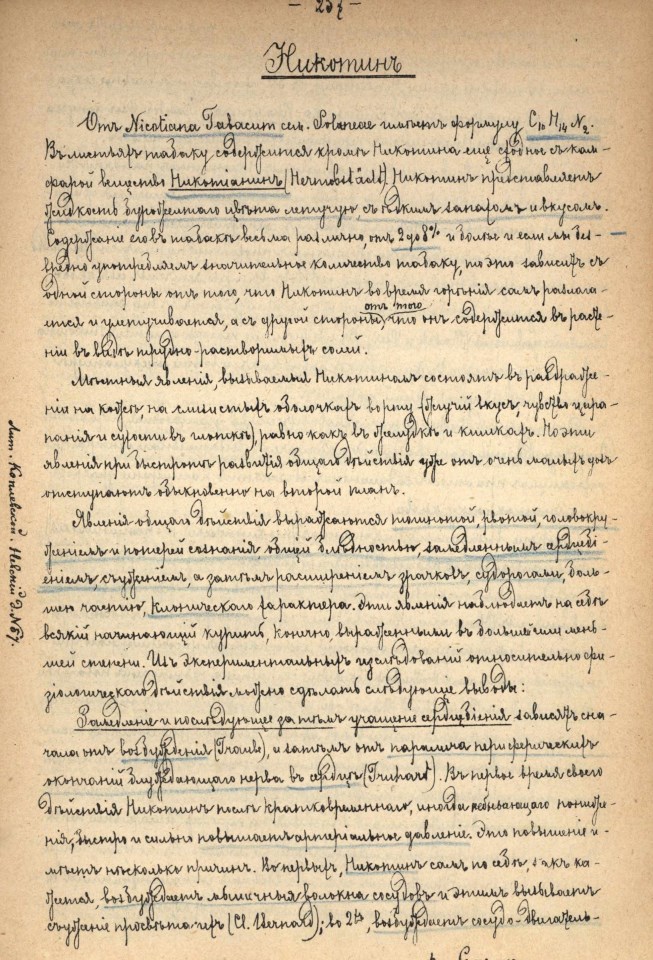 — 257 —
Никотинъ
Отъ Nicotiana Tabacum сем. Solaneae имѣетъ формулу C₁₀ H₁₄ N₂.
Въ листьяхъ табаку содержится кромѣ Никотина еще сходное съ кам-
фарой вещество Никотіанинъ (Hermbstädt). Никотинъ представляетъ
жидкость бурожелтаго цвѣта летучую, съ ѣдкимъ запахомъ и вкусомъ.
Содержаніе его въ табакѣ весьма различно, отъ 2 до 8% и болѣе и если мы без-
вредно употребляемъ значительное количество табаку, то это зависитъ съ
одной стороны отъ того, что Никотинъ во время горѣнія самъ разлага-
ется и улетучивается, а съ другой стороны отъ того что онъ содержится въ расте-
ніи въ видѣ трудно-растворимыхъ солей.
Мѣстныя явленія, вызываемыя Никотиномъ состоятъ въ раздраже-
ніи на кожѣ, на слизистыхъ оболочкахъ во рту (жгучій вкусъ, чувство цара-
панія и сухости въ глоткѣ), равно какъ въ желудкѣ и кишкахъ. Но эти
явленія при быстромъ развитіи общаго дѣйствія уже отъ очень малыхъ дозъ
отступаютъ обыкновенно на второй планъ.
Явленія общаго дѣйствія выражаются тошнотой, рвотой, головокру-
женіемъ и потерей сознанія общей блѣдностью, замедленнымъ сердцебі-
еніемъ, съуженіемъ, а затѣмъ расширеніемъ зрачковъ, судорогами, боль-
шею частію, клоническаго характера. Эти явленія наблюдаетъ на себѣ
всякій начинающій курить, конечно, выраженными въ большей или мень-
шей степени. Изъ экспериментальныхъ изслѣдованій относительно фи-
зіологическаго дѣйствія можно сдѣлать слѣдующіе выводы:
Замедленіе и послѣдующее затѣмъ учащеніе сердцебіенія зависятъ сна-
чала отъ возбужденія (Traube), и затѣмъ отъ паралича периферическихъ
окончаній блуждающаго нерва въ сердцѣ (Truhart). Въ первое время своего
дѣйствія Никотинъ послѣ кратковременнаго, иногда небывающаго пониже-
нія, быстро и сильно повышаетъ артеріальное давленіе. Это повышеніе и-
мѣетъ нѣсколько причинъ. Во первыхъ, Никотинъ самъ по себѣ, такъ ка-
жется, возбуждаетъ мышечныя волокна сосудовъ и этимъ вызываетъ
съуженіе просвѣта ихъ (Cl. Bernard); во 2хъ, возбуждаетъ сосудо-двигатель-
Лит. Коплевской. Невский д. № 57.